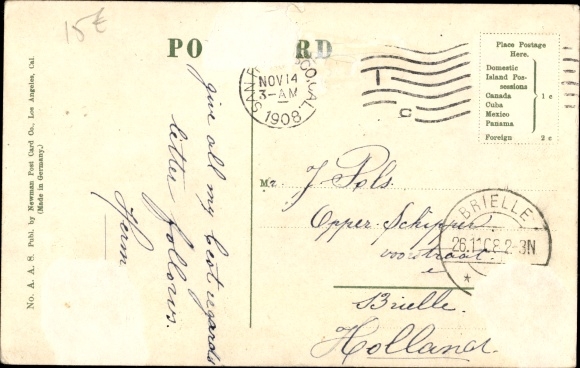 15€
PO RD
Place Postage
Here.
Domestic
Island Pos-
sessions
Canada
Cuba
Mexico
Panama
1 c
Foreign 2 c
NOV 14
3-AM
1908
CAL.
T
C
No. A. A. 8. Publ. by Newman Post Card Co., Los Angeles, Cal.
(Made in Germany.)
give all my best regards
letter follows.
Herm
Mr. J. Pols.
Opper-Schipper
voorstraat
Brielle.
Holland.
BRIELLE
26.11.08 2-3N